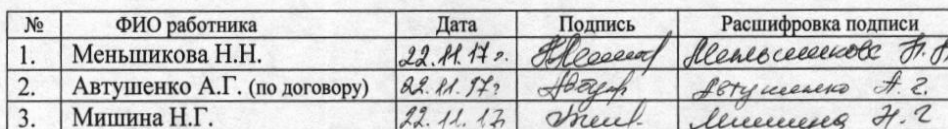 № ФИО работника Дата Подпись Расшифровка подписи
1. Меньшикова Н.Н. 22.11.17г. Меньшикова Н.
2. Автушенко А.Г. (по договору) 22.11.17г Автушенко А.Г.
3. Мишина Н.Г. 22.11.17г Мишина Н.Г